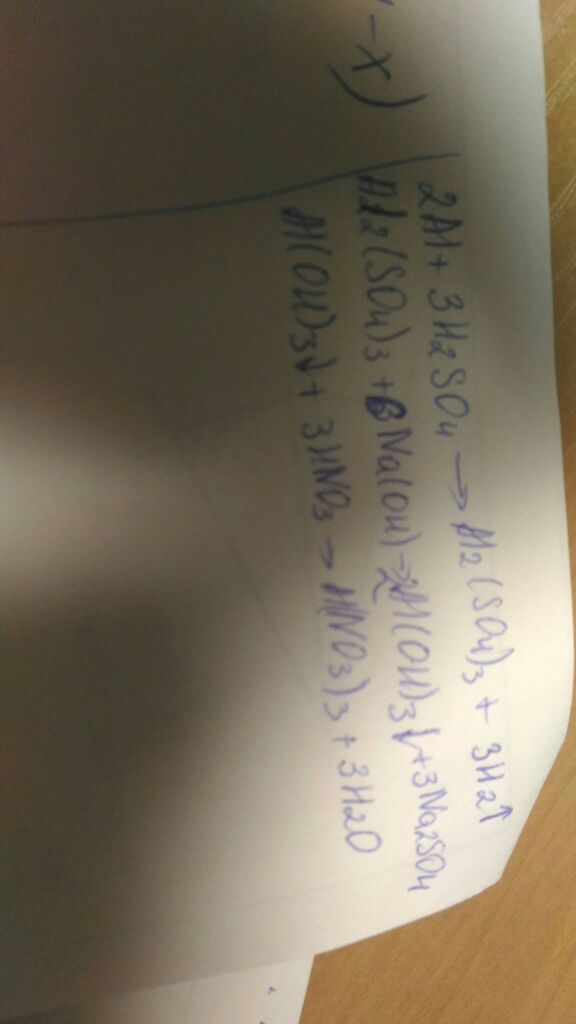 -x)
2Al + 3H2SO4 → Al2(SO4)3 + 3H2↑
Al2(SO4)3 + 6Na(OH) → 2Al(OH)3↓ + 3Na2SO4
Al(OH)3↓ + 3HNO3 → Al(NO3)3 + 3H2O